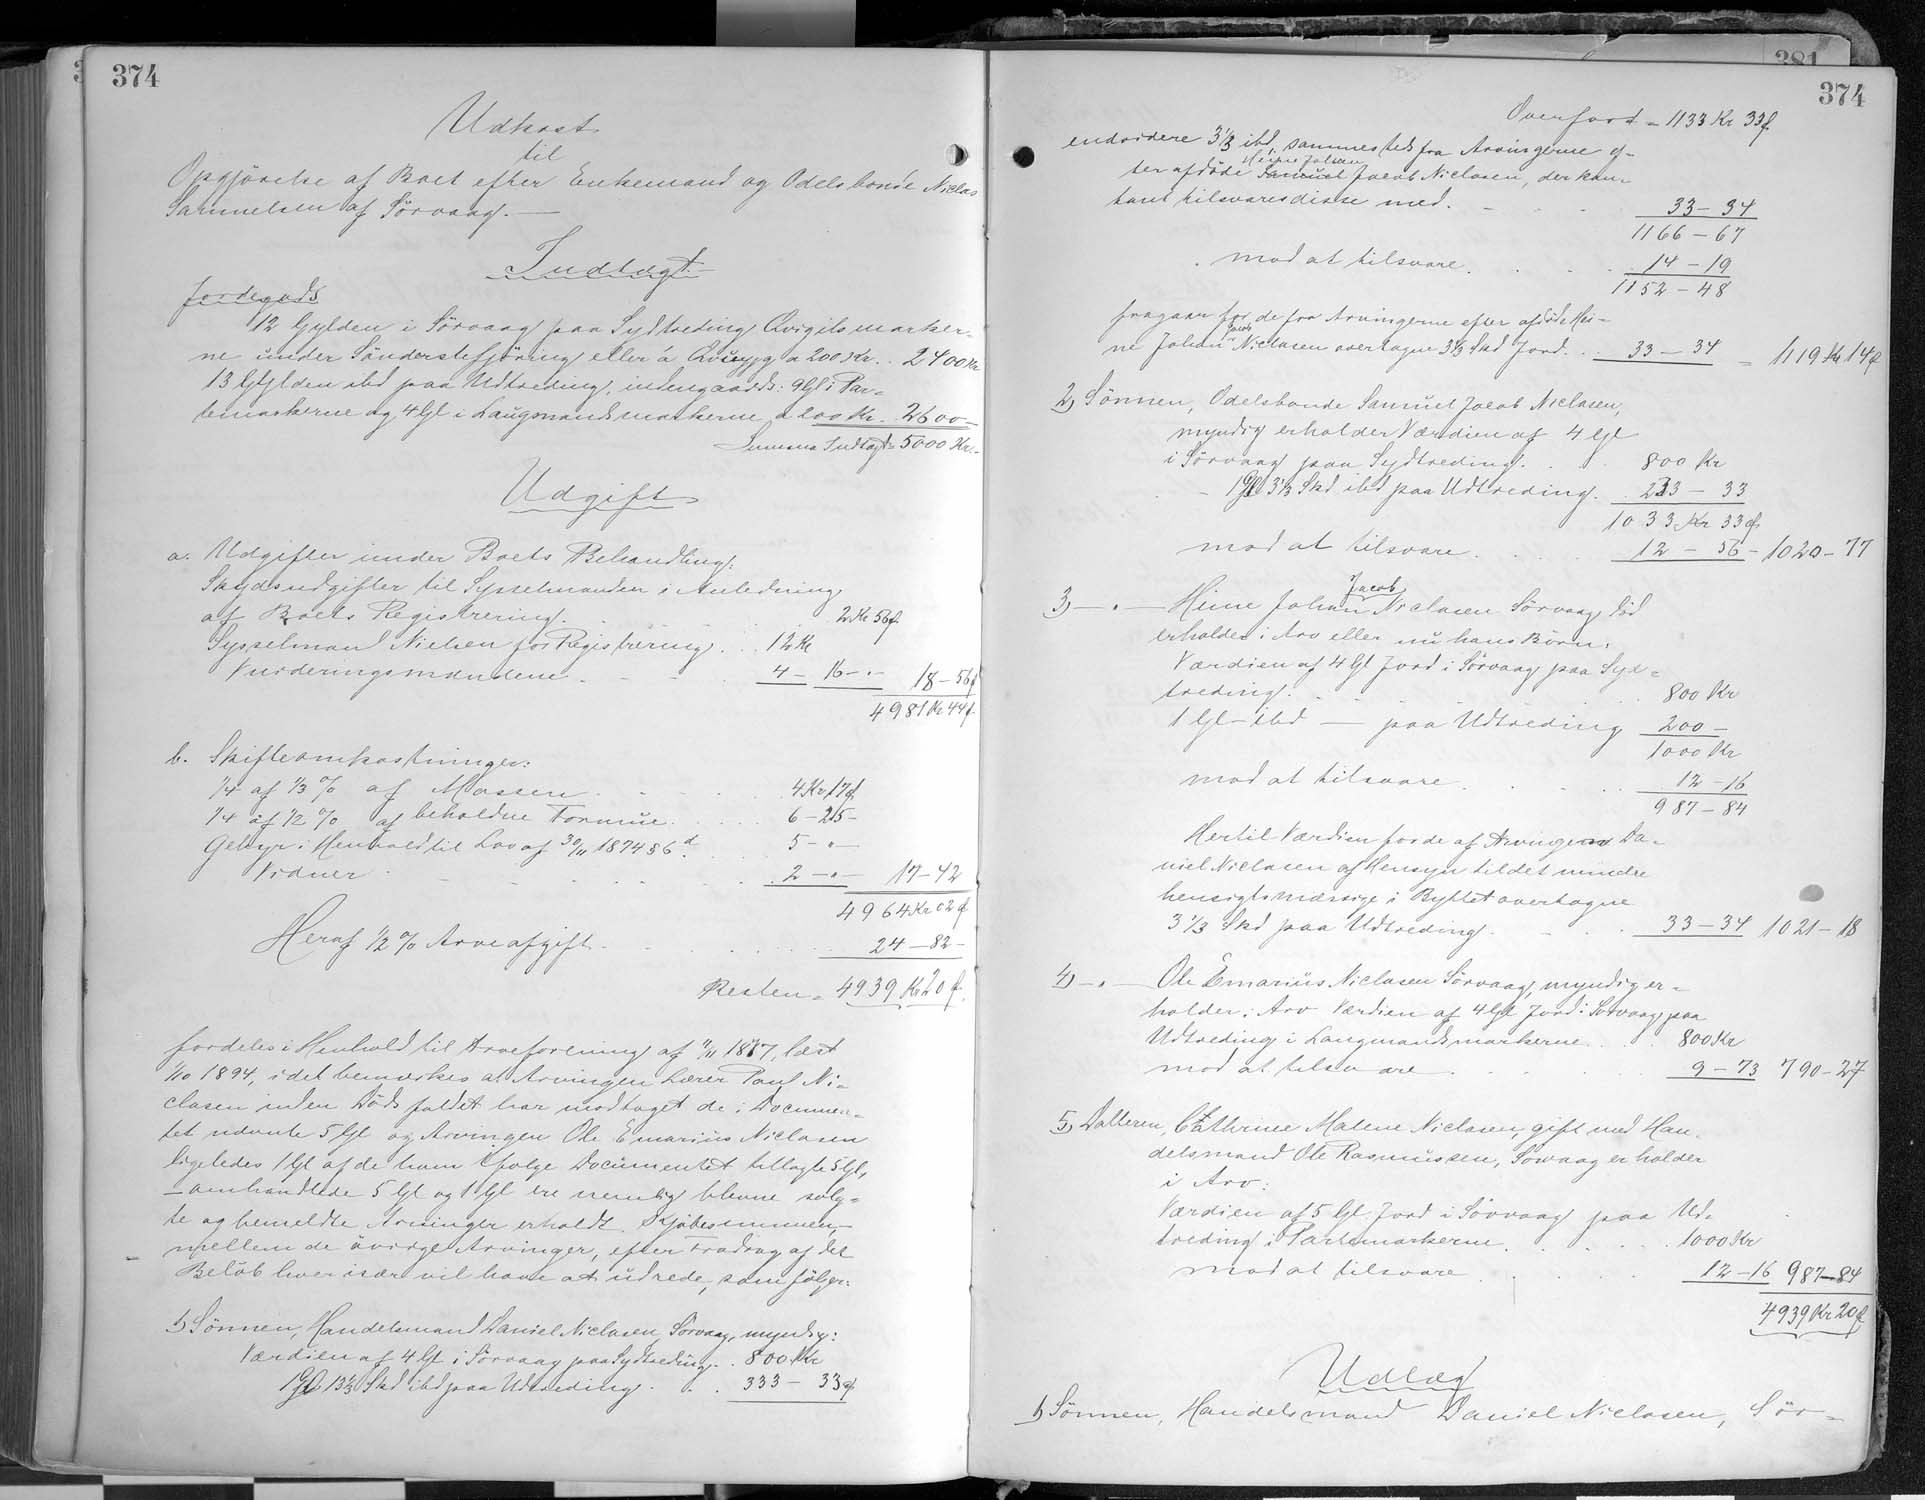 374
Udkast
til
Opgjörelse af Boet efter Enkemand og Odelsbonde Niclas
Samuelsen af Sörvaag.—
Indtægt.
Jordegods
12 Gylden i Sörvaag paa Sydtreding Qvigilsmarker-
ne under Sönderste fjöring eller á a 200 Kr. . 2400 Kr
13 Gylden ibd paa Udtreding, indengaards: 9 Gl i Par-
temarkerne og 4 Gl i Laugmandsmarkerne a 200 Kr. 2600 –
Summa Indtægt = 5000 Kr. –
Udgift
a. Udgifter under Boets Behandling:
Skydsudgifter til Sysselmanden i Anledning
af Boets Registrering. . . . 2 Kr 56 ø.
Sysselmand Nielsen for Registrering. . . 12 Kr
Vurderingsmændene. – – – 4 – 16 – " – 18 – 56 ø
4981 Kr 44 ø.
b. Skifteomkostninger:
1/4 af 1/3 % af Massen. . . . . 4 Kr 17 ø.
1/4 af 1/2 % af beholdne Formue. . . . . 6 – 25 –
Gebyr i Henhold til Lov af 30/11 1874 § 6 d. . . 5 – " –
Vidner . – – . . . . . 2 – " – 17 – 42
4964 Kr 02 ø
Heraf 1/2 % Arveafgift. – . . . . . 24 – 82 –
Resten = 4939 Kr 20 ø.
fordeles i Henhold til Arveforening af 11/11 1877, læst
1/10 1894, idet bemærkes at Arvingen Lærer Poul Ni-
clasen inden Dödsfaldet har modtaget de i Documen-
tet nævnte 5 Gl og Arvingen Ole Emarius Niclasen
ligeledes 1 Gl af de ham ifølge Documentet tillagte 5 Gl,
– omhandlede 5 Gl og 1 Gl ere nemlig blevne solg-
te og bemeldte Arvinger erholdt Kjöbesummen –
mellem de övrige Arvinger, efter Fradrag af det
Belöb hver især vil have at udrede, som fölger:
1) Sönnen, Handelsmand Daniel Niclasen, Sörvaag, myndig:
Værdien af 4 Gl i Sörvaag paa Sydtreding. . 800 Kr
1 Gl 13 1/3 Skd ibd paa Udtreding . . . 333 – 33 ø.
381
374
Overført = 1133 Kr 33 ø.
endvidere 3 1/3 ibd, sammesteds fra Arvingerne ef-
Heine Johan
ter afdöde Samuel Jacob Niclasen, der kon-
tant tilsvares disse med. – – . . 33 – 34
1166 – 67
mod at tilsvare. . . . . 14 – 19
1152 – 48
fragaar for de fra Arvingerne efter afdöde Hei-
Jacob
ne Johan Niclasen overtagne 3 1/3 Skd Jord. . . 33 – 34 = 1119 Kr 14 ø
2) Sönnen, Odelsbonde Samuel Jacob Niclasen,
myndig erholder Værdien af 4 Gl
i Sörvaag paa Sydtreding. . . . 800 Kr
– 1 Gl 3 1/3 Skd ibd paa Udtreding. . . 233 – 33
1033 Kr 33 ø
mod at tilsvare. . . . . 12 – 56 – 1020 – 77
Jacob
3) – " – Heine Johan Niclasen Sörvaag, död
erholder i Arv eller nu hans Börn:
Værdien af 4 Gl Jord i Sörvaag paa Syd-
treding. . . . . 800 Kr
1 Gl – ibd — paa Udtreding 200 –
1000 Kr
mod at tilsvare. . . . . 12 – 16
987 – 84
Hertil Værdien for de af Arvingen Da-
niel Niclasen af Hensyn til det mindre
hensigtsmæssige i Byttet overtagne
3 1/3 Skd paa Udtreding. – . . 33 – 34 1021 – 18
4) – " – Ole Emarius Niclasen Sörvaag, myndig er-
holder i Arv Værdien af 4 Gl Jord i Sörvaag paa
Udtreding i Laugmandsmarkerne. . . . 800 Kr
mod at tilsvare . . . . . 9 – 73 790 – 27
5) Datteren, Cathrine Malene Niclasen, gift med Han-
delsmand Ole Rasmussen, Sörvaag erholder
i Arv:
Værdien af 5 Gl. Jord i Sörvaag paa Ud-
treding i Partemarkerne . . . . . 1000 Kr
mod at tilsvare . . . . . 12 – 16 987 – 84
4939 Kr 20 ø
Udlæg
1) Sönnen, Handelsmand Daniel Niclasen, Sör-